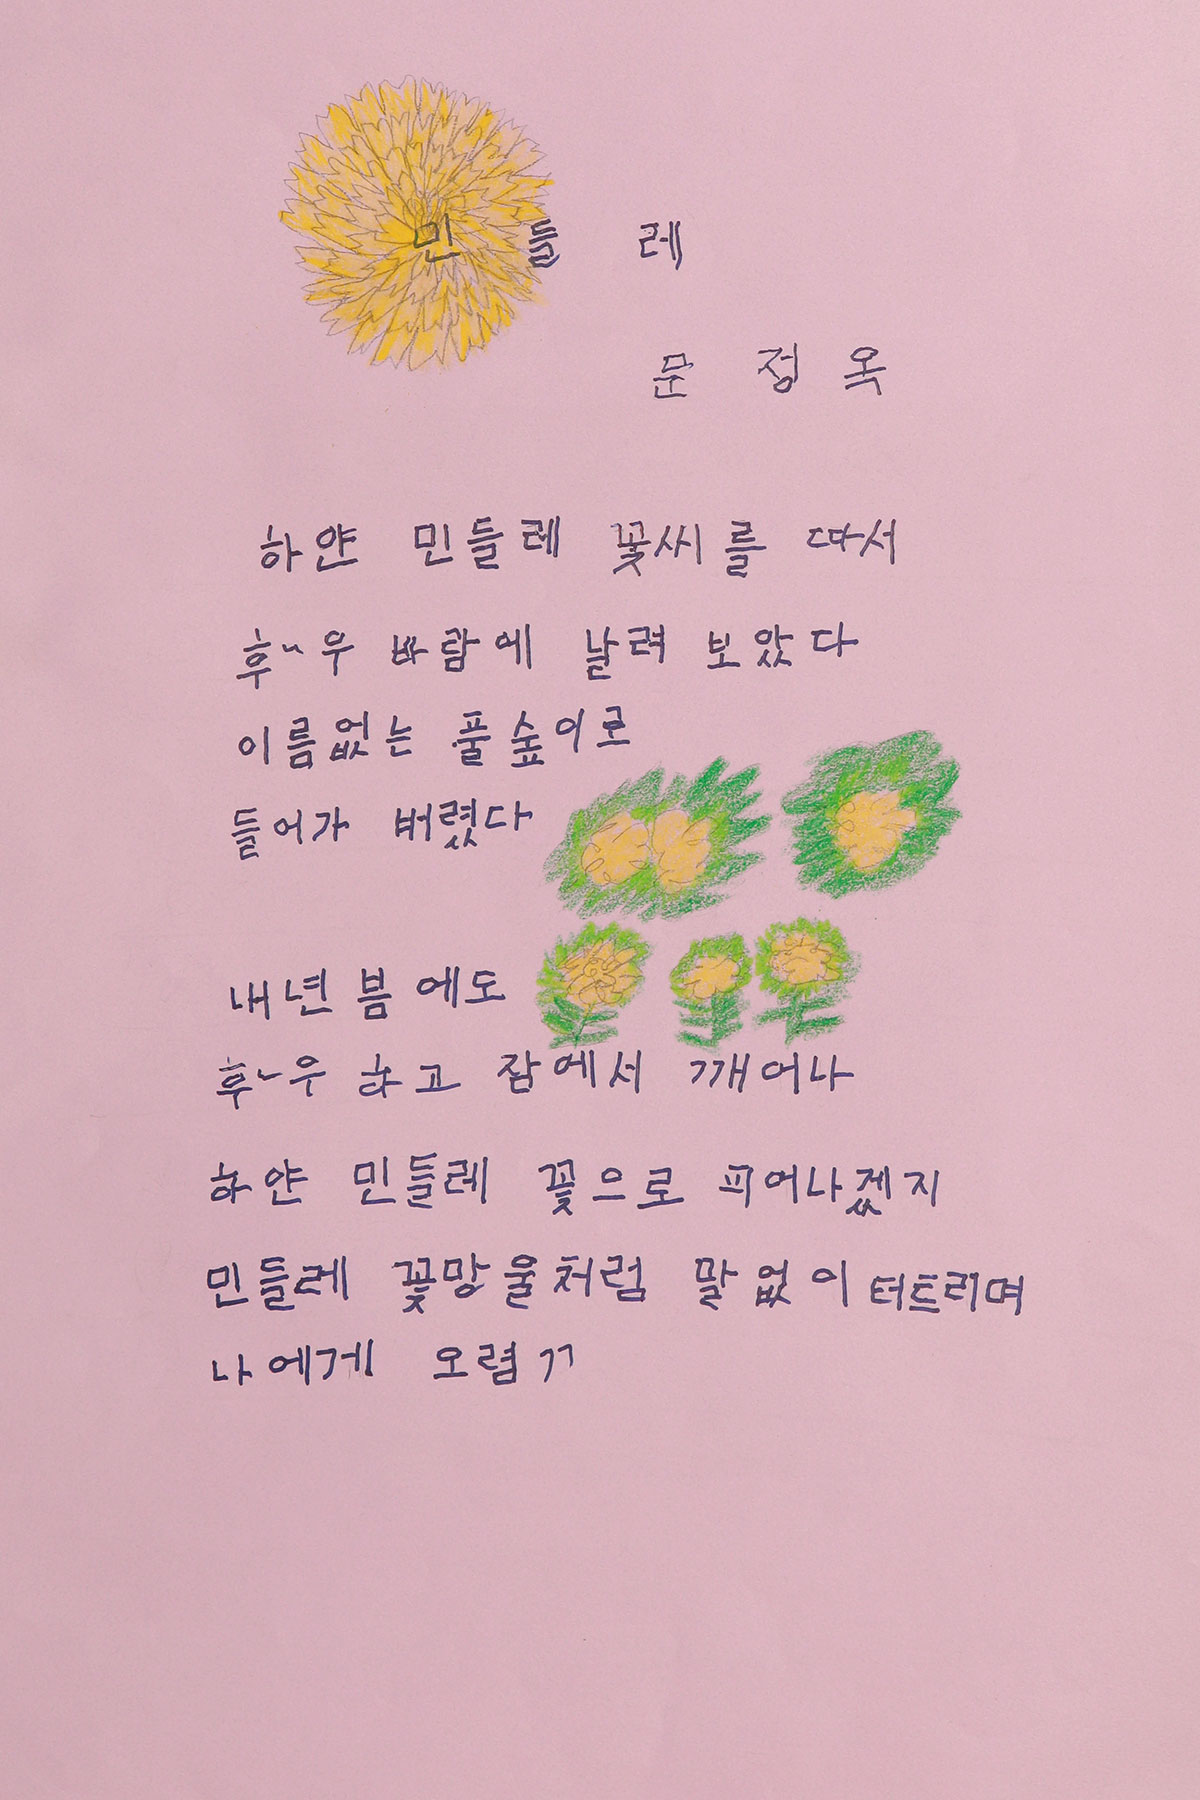 민들레
문정옥
하얀 민들레 꽃씨를 따서
후~우 바람에 날려 보았다
이름없는 풀숲이로
들어가 버렸다
내년 봄에도
후~우 하고 잠에서 깨어나
하얀 민들레 꽃으로 피어나겠지
민들레 꽃망울처럼 말없이 터트리며
나에게 오렴ㄲ